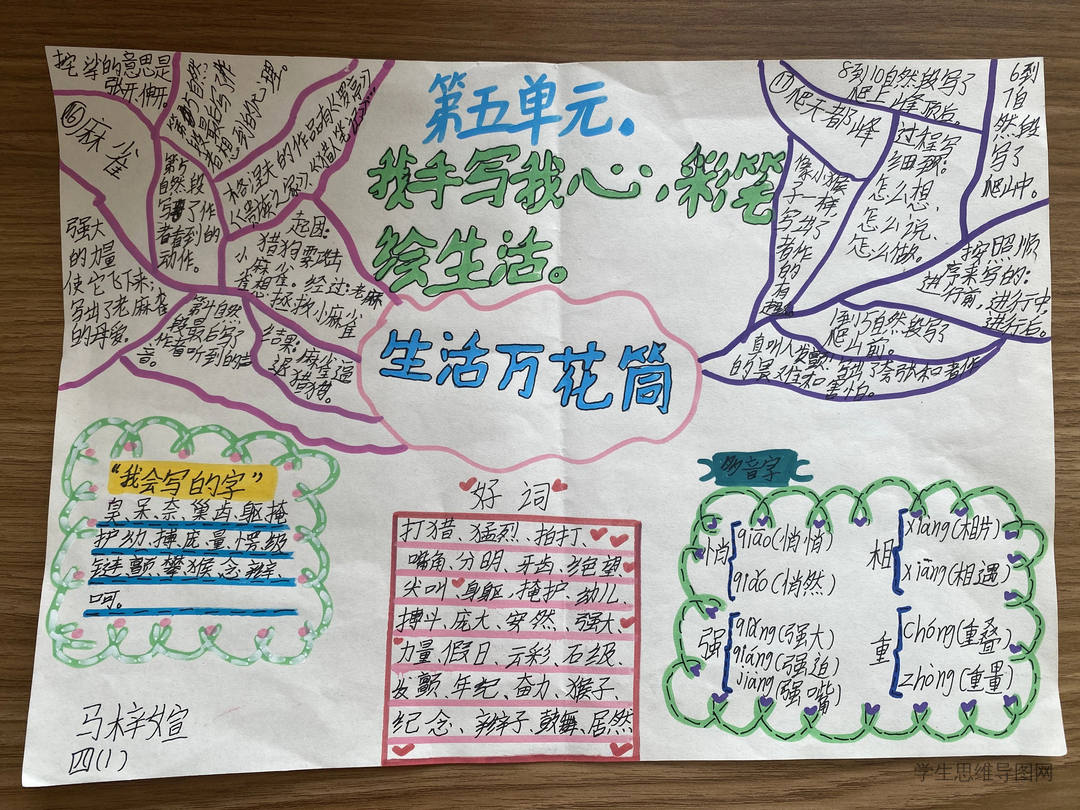 第五单元.
我手写我心,彩笔
绘生活。
生活万花筒
挓挲的意思是
张开,伸开。
⑯麻雀
强大
的力量
使它飞下来;
写出了老麻雀
的母爱。
第5
自然段
写了作
者看到的
动作。
起因:
猎狗要攻击
小麻雀。
经过:老麻
雀
拯救小麻雀
结果:麻雀逼
退猎狗。
第4自然
段最后写了
作者听到的声
音。
⑰
爬天都峰
8到10自然段写了
爬上峰顶后。
6到
7自
然段
写了
爬山中。
过程写
细致:
怎么想、
怎么说、
怎么做。
像小猴
子一样,
写出了
作的
有
按照顺
序来写的:
进行前,进行中,
进行后。
1到5自然段写了
爬山前。
真叫人发颤
“我会写的字”
臭、呆、奈、巢、齿、躯、掩
护、幼、搏、庞、量、愣、级
链、颤、攀、猴、念、辫、
呵。
好词
打猎、猛烈、拍打、
嘴角、分明、牙齿、绝望、
尖叫、身躯、掩护、幼儿、
搏斗、庞大、安然、强大、
力量、假日、云彩、石级、
发颤、年纪、奋力、猴子、
纪念、辫子、鼓舞、居然
多音字
悄
qiāo(悄悄)
qiǎo(悄然)
相
xiàng(相片)
xiāng(相遇)
强
qiáng(强大)
qiǎng(强迫)
jiàng(强嘴)
重
chóng(重叠)
zhòng(重量)
四(1)
学生思维导图网